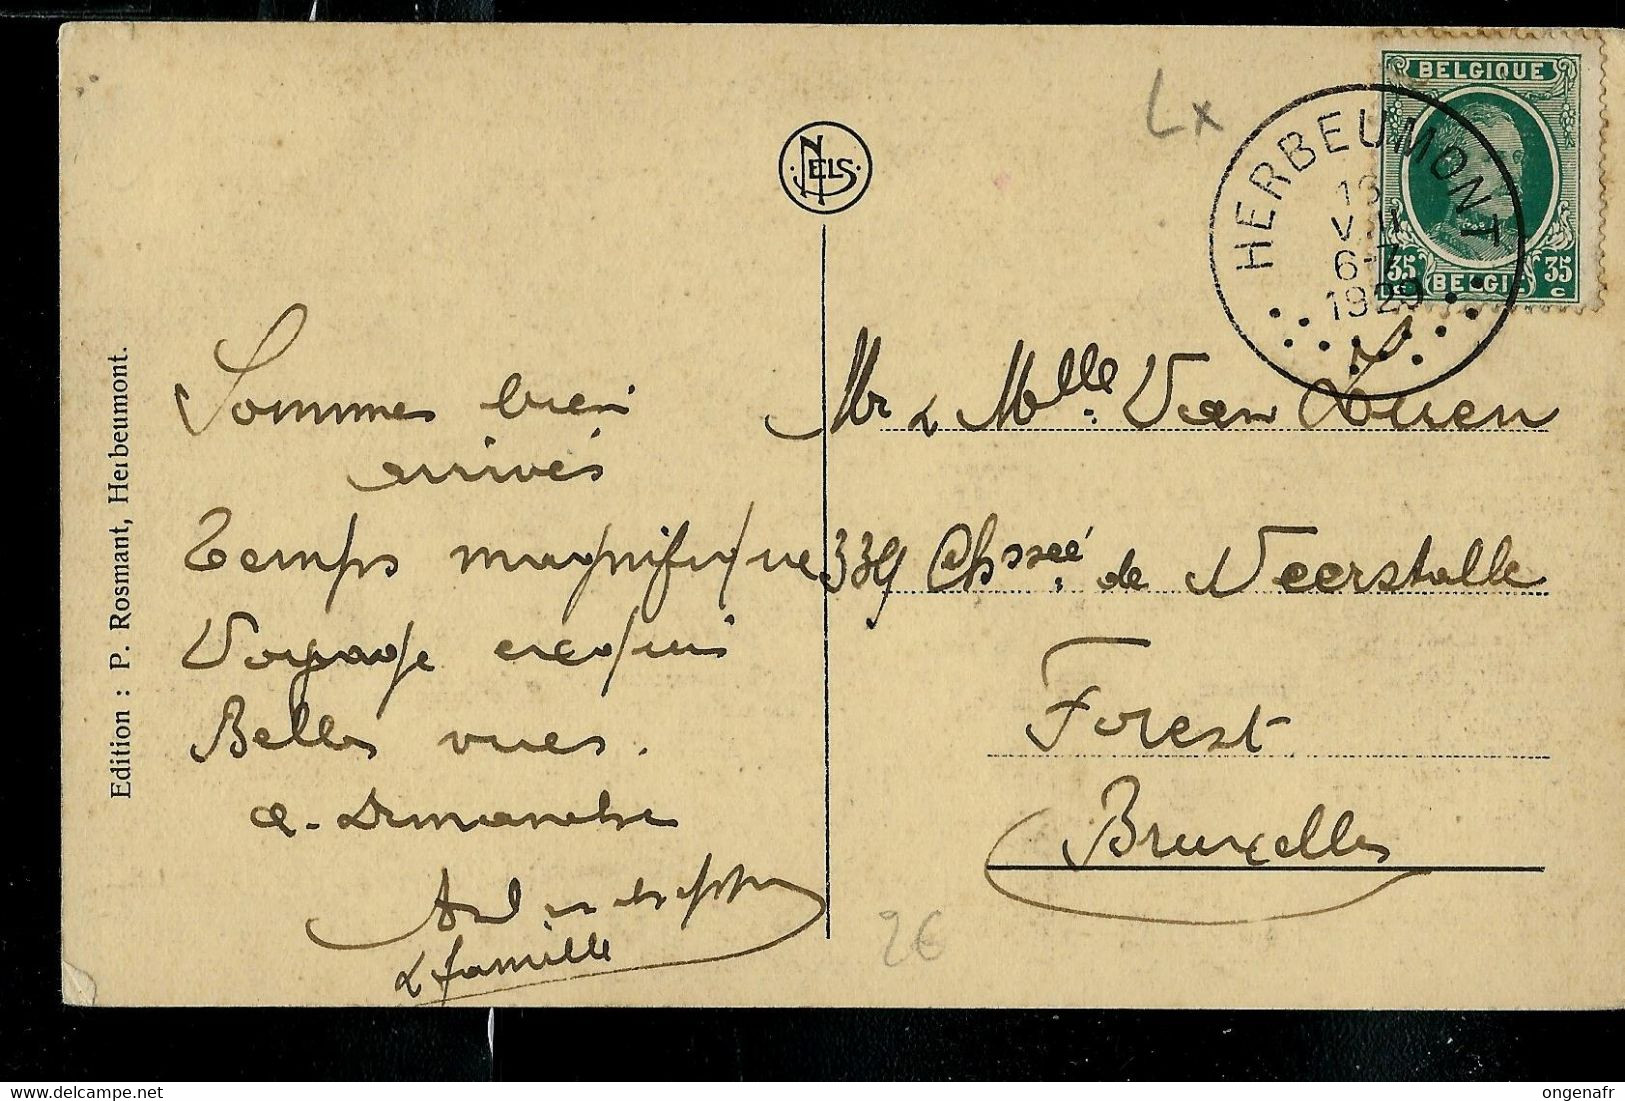 BELGIQUE
35 c BELGIË 35 c
HERBEUMONT
VII
6-7
1929
NELS
Lx
Edition : P. Rosmant, Herbeumont.
Sommes bien
arrivés
Temps magnifique
Voyage exquis
Belles vues.
à Dimanche
& famille
Mr & Mlle Van
339 Chssée de Neerstalle
Forest
Bruxelles
2€
ongenafr